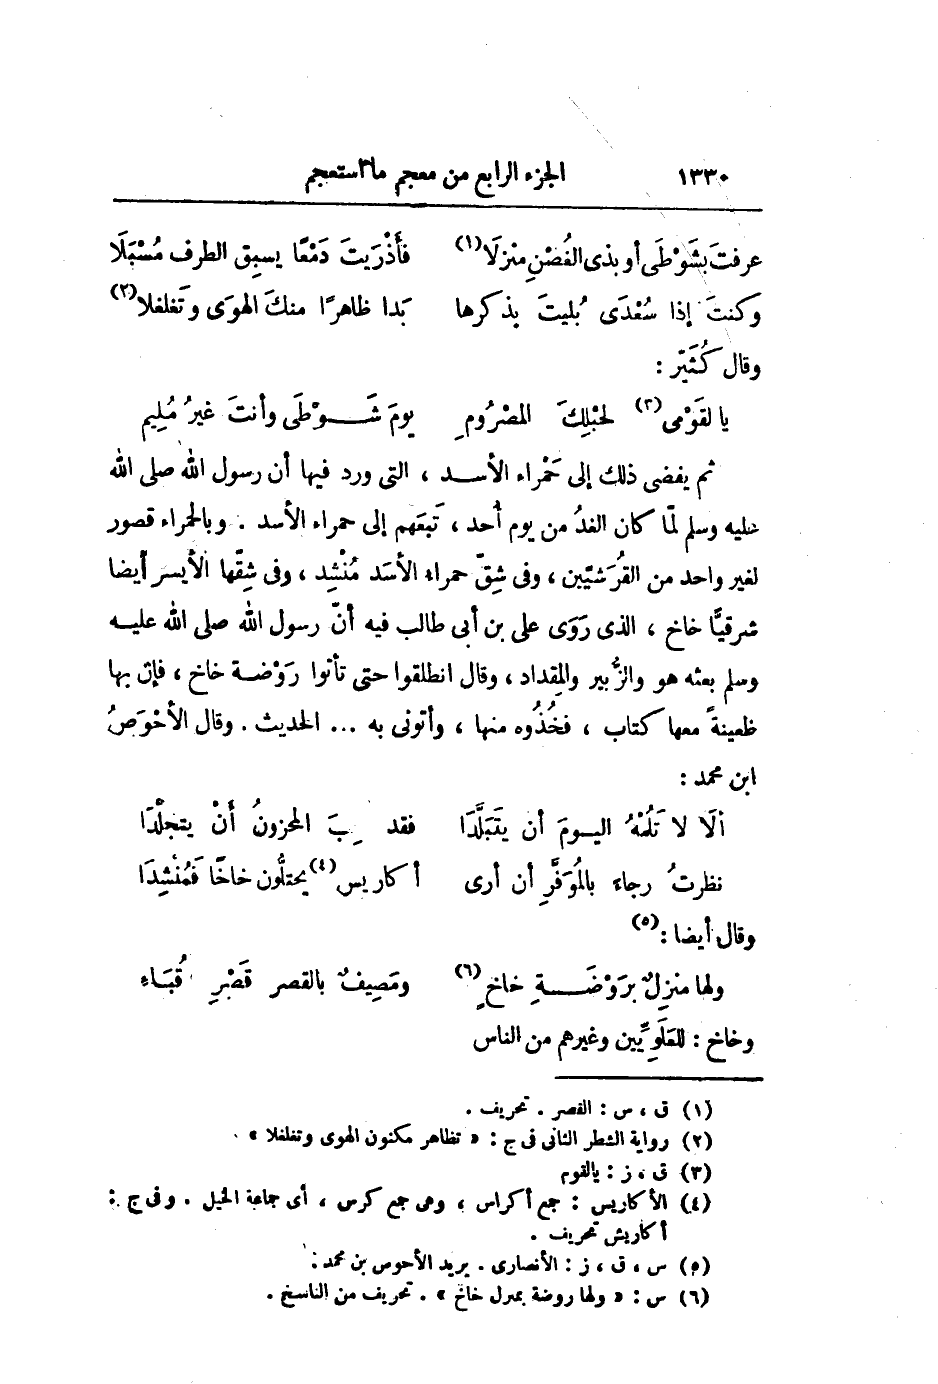 ١٣٣٠ الجزء الرابع من معجم ما استعجم
عرفتَ بشَوْطَى أو بذى الغُصْنِ منزِلَا(١) فأَذْرَيتَ دَمْعًا يسبِق الطرف مُسْبَلَا
وكنتَ إذا سُعْدَى بُليتَ بذكرها بَدا ظاهرًا منكَ الهوَى وتَغلغلا(٢)
وقال كُثَيّر :
يا لقَوْمى(٣) لحَبْلِكَ المصْرُومِ يومَ شَوْطَى وأنتَ غيرُ مُلِيم
ثم يفضى ذلك إلى حَمْراء الأسد ، التى ورد فيها أن رسول الله صلى الله
عليه وسلم لمّا كان الغدُ من يوم أُحد ، تَبعَهم إلى حمراء الأسد . وبالحمراء قصور
لغير واحد من القُرَشيّين ، وفى شِقّ حمراء الأسَد مُنْشِد ، وفى شِقّها الأيسر أيضا
شرقيًّا خاخ ، الذى رَوَى على بن أبى طالب فيه أنّ رسول الله صلى الله عليه
وسلم بعثه هو والزُّبير والمِقداد ، وقال انطلقوا حتى تأتوا رَوْضة خاخ ، فإن بها
ظعينةً معها كتاب ، فخُذُوه منها ، وأتونى به ... الحديث . وقال الأحْوَصُ
ابن محمد :
ألَا لا تَلُمْهُ اليومَ أن يَتَبَلَّدَا فقد المحزونُ أَنْ يتجلّدَا
نظرتُ رجاءً بالمُوَقَّرِ أن أرى أكاريس(٤) يحتلُّون خاخًا فَمُنْشِدَا
وقال أيضا :(٥)
ولها منزِلٌ برَوْضَةِ خاخٍ(٦) ومَصِيفٌ بالقصر قَصْرِ قُبَاءِ
وخاخ : للعَلَوِيّين وغيرهم من الناس
(١) ق ، س : القصر . تحريف .
(٢) رواية الشطر الثانى فى ج : « تظاهر مكنون الهوى وتغلغلا » .
(٣) ق ، ز : يالقوم
(٤) الأكاريس : جمع أكراس ، وهى جمع كرس ، أى جماعة الخيل . وفى ج :
أكاريش تحريف .
(٥) س ، ق ، ز : الأنصارى . يريد الأحوص بن محمد :
(٦) س : « ولها روضة بمنزل خاخ » . تحريف من الناسخ .